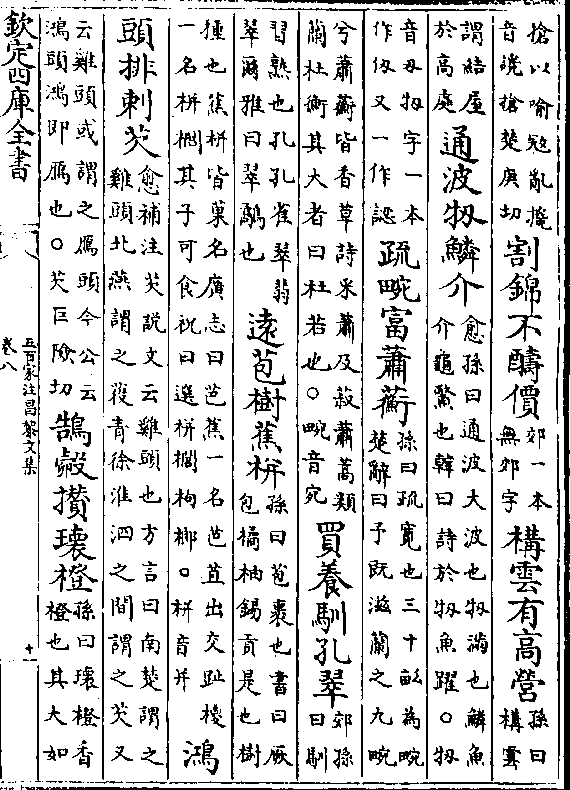 搶以喻寇亂攙
音讒搶楚庚切
割錦不醻價
郊一本
無郊字
構雲有高營
孫曰
構雲
謂結屋
於高處
通波牣鱗介
愈孫曰通波大波也牣滿也鱗魚
介龜鱉也韓曰詩於牣魚躍○牣
音刃牣字一本
作仞又一作認
疏畹富蕭蘅
孫曰疏寬也三十畝為畹
楚辭曰予既滋蘭之九畹
兮蕭蘅皆香草詩采蕭及菽蕭蒿類
蘭杜衡其大者曰杜若也○畹音宛
買養馴孔翠
郊孫
曰馴
習熟也孔孔雀翠翡
翠爾雅曰翠鷸也
遠苞樹蕉栟
孫曰苞裹也書曰厥
包橘柚錫貢是也樹
種也蕉栟皆菓名廣志曰芭蕉一名芭苴出交趾椶
一名栟櫚其子可食祝曰選栟櫚枸榔○栟音并
鴻
頭排刺芡
愈補注芡説文云雞頭也方言曰南楚謂之
雞頭北燕謂之䓈青徐淮泗之間謂之芡又
云雞頭或謂之鴈頭今公云
鴻頭鴻即鴈也○芡巨險切
鵠㲉攅瓌橙
孫曰瓌橙香
橙也其大如
欽定四庫全書
五百家注昌黎文集
卷八